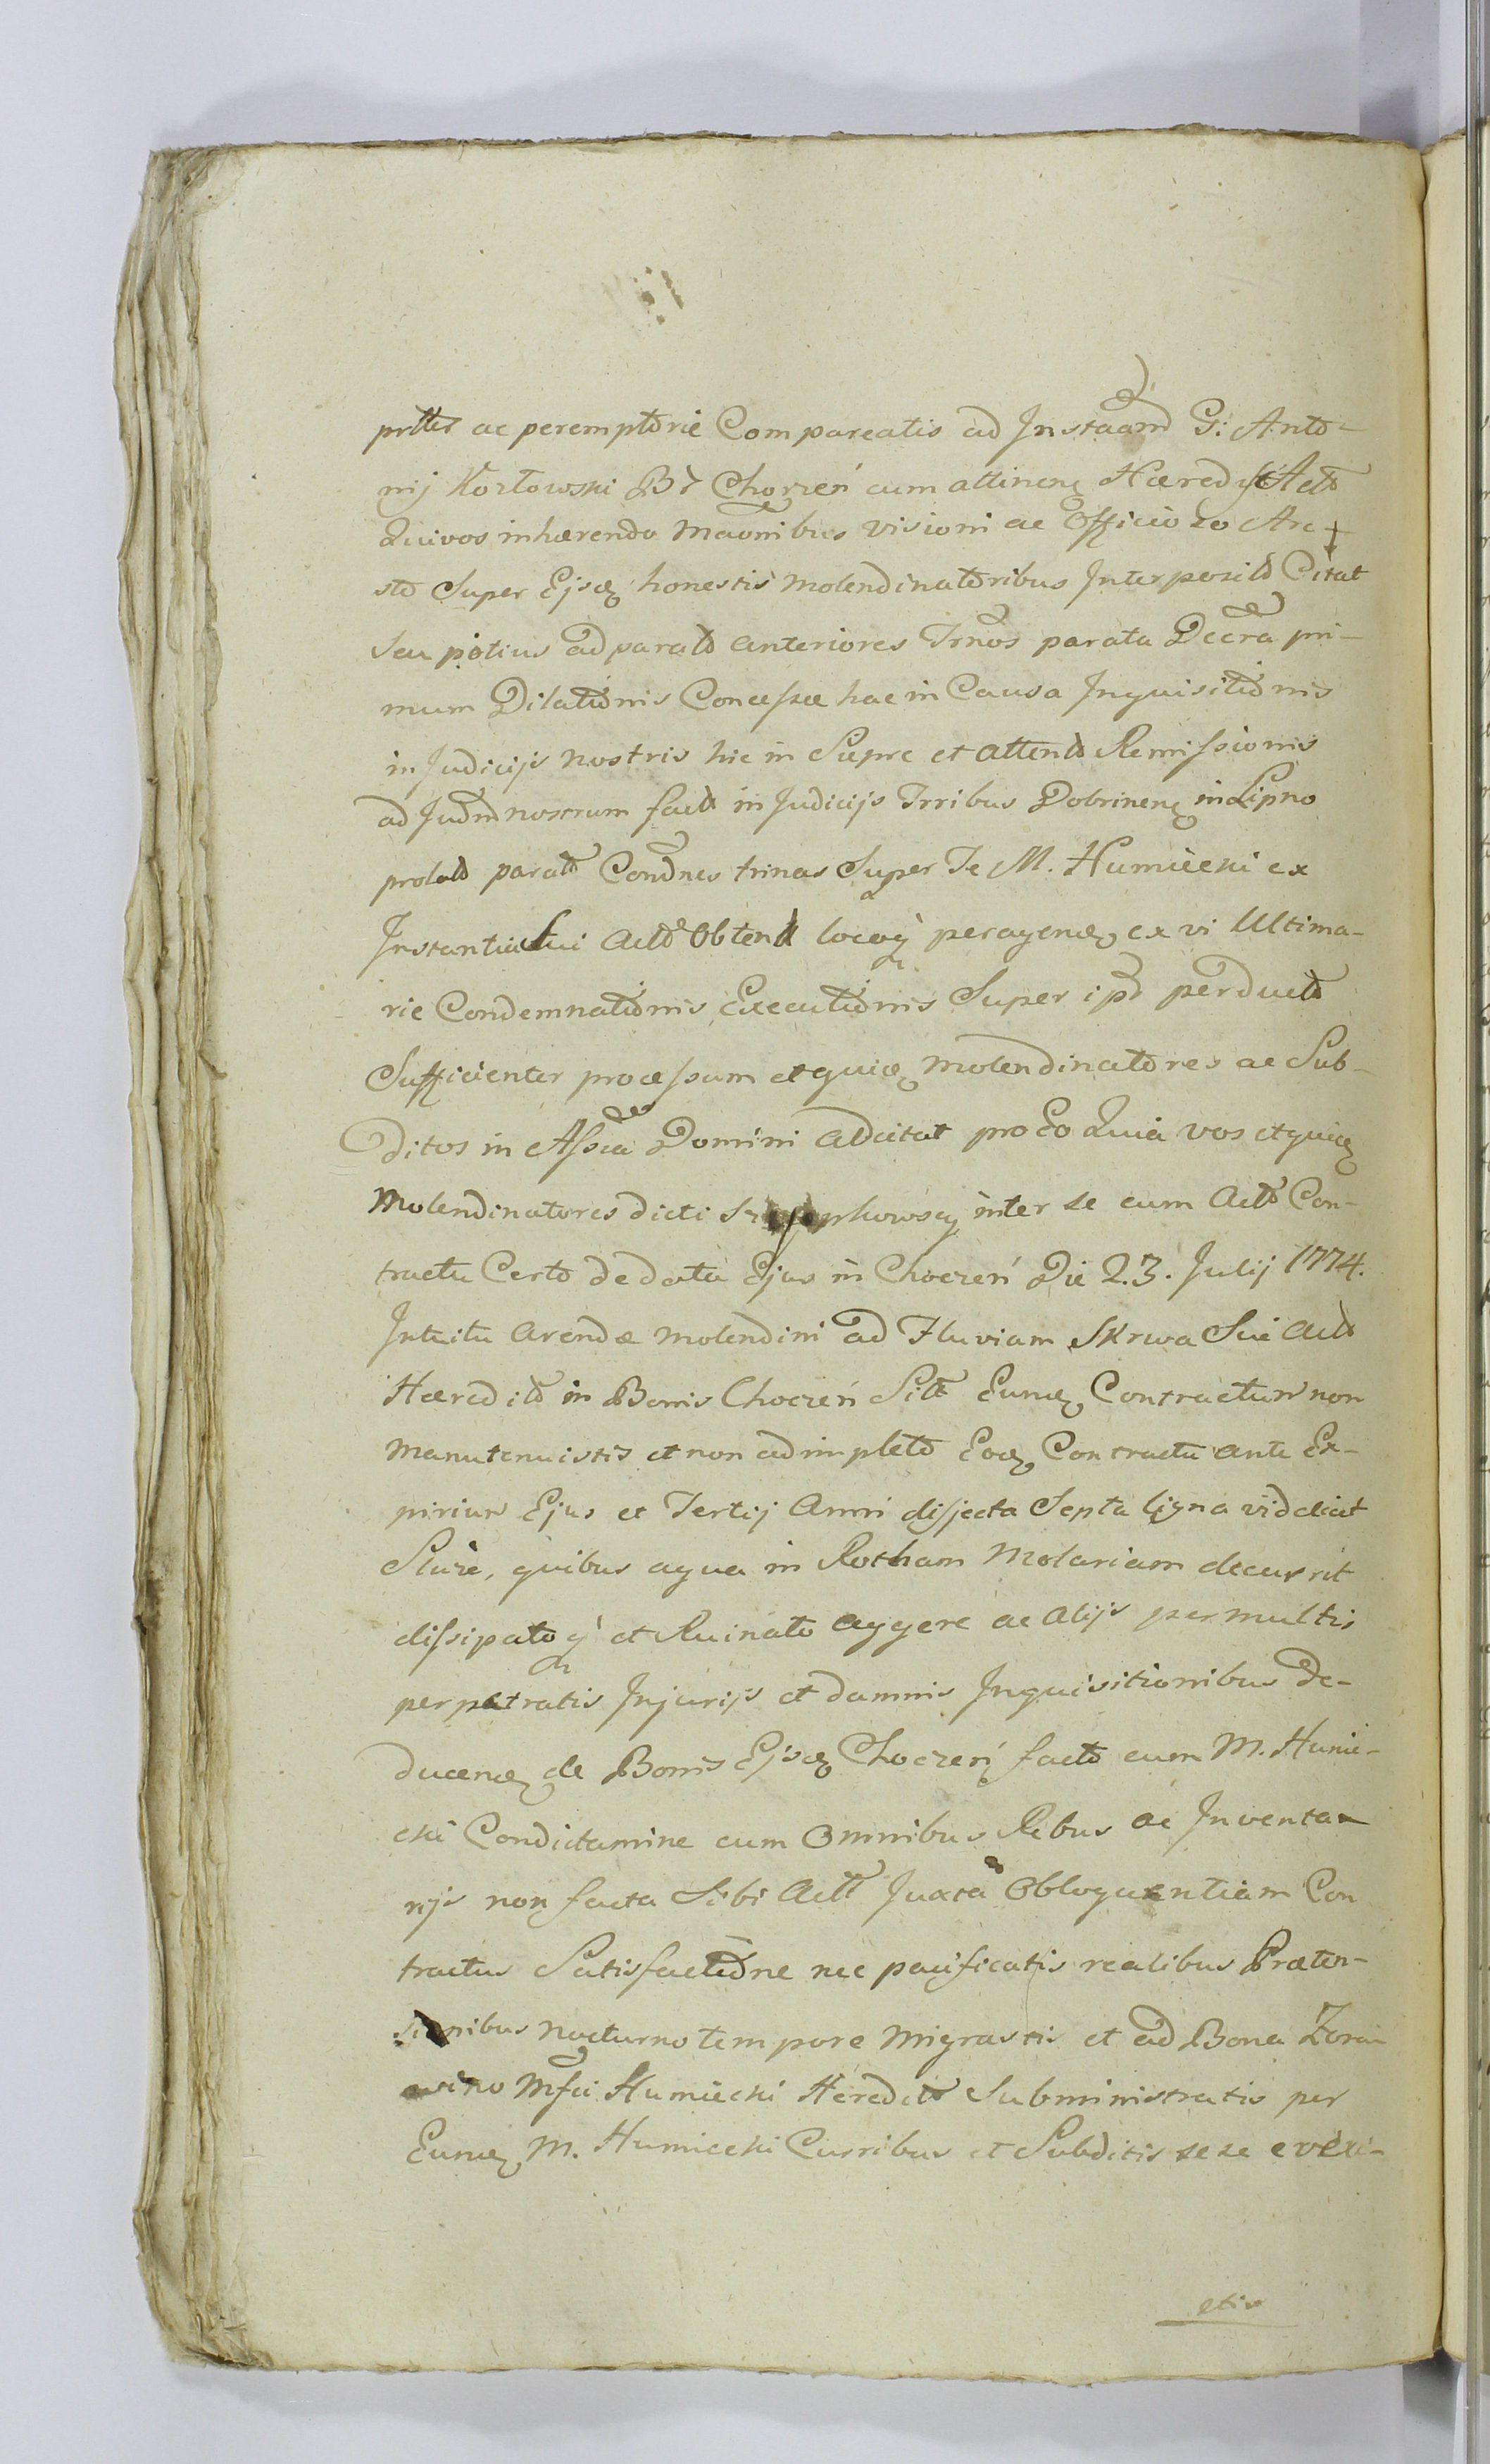 prttr ac peremptorie Compareatis ad Instaam G: Anto-
nij Kozłowski Br Choczeń cum attinen Hæredis Acto
Quivos inhærendo Maonibus visioni ac Officioso Are
sto Super Ejsd honestis Molendinatoribus Interposito Citat
seu potius ad parato anteriores Trnos parata Decra pri-
mum Dilationis Concessæ hac in Causa Inquisitionis
in Judicijs nostris hic in Sierpc et attento Remissionis
ad Judm nostrum facto in Judicijs Trribus Dobrinen in Lipno
prolato parato Condnes trinas Super Te M. Humiecki ex
Instantia Sui Acto Obtent locoq peragend ex vi Ultima-
rie Condemnationis Executionis Super ipso perducto
Sufficienter processum et quid Molendinatores ac Sub-
ditos in Assia Domini Adcitat pro Eo Quia vos et quid
Molendinatores dicti inter se cum Acto Con-
tractu Certo de data Ejus in Choczeń Die 23. Julij 1774.
Intuitu Arendæ Molendini ad Fluviam Skrwa Sui Acto
Hæredito in Bonis Choczeń Sito Eund Contractum non
Manutenuistis et non adimpleto Eod Contractu ante Ex-
pirium Ejus et Tertij Anni disjecta Septa ligna videlicet
Sluze, quibus aqua in Rotham Molariam decurrit
dissipatoq et Ruinato aggere ac Alijs permultis
perpetratis Injurijs et damnis Inquisitionibus De-
ducend de Bonis Ejsd Choczeń facto cum M. Humie-
cki Condictamine cum Omnibus Rebus ac Inventa-
rijs non facta Sibi Acto Juxta Obloquentiam Con
tractus Satisfactione nec pacificatis realibus Præten-
sionibus nocturno tempore Migrastis et ad Bona
Mfci Humiecki Heredito Subministratis per
Eund M. Humiecki Curribus et Subditis sese evexi-
etis